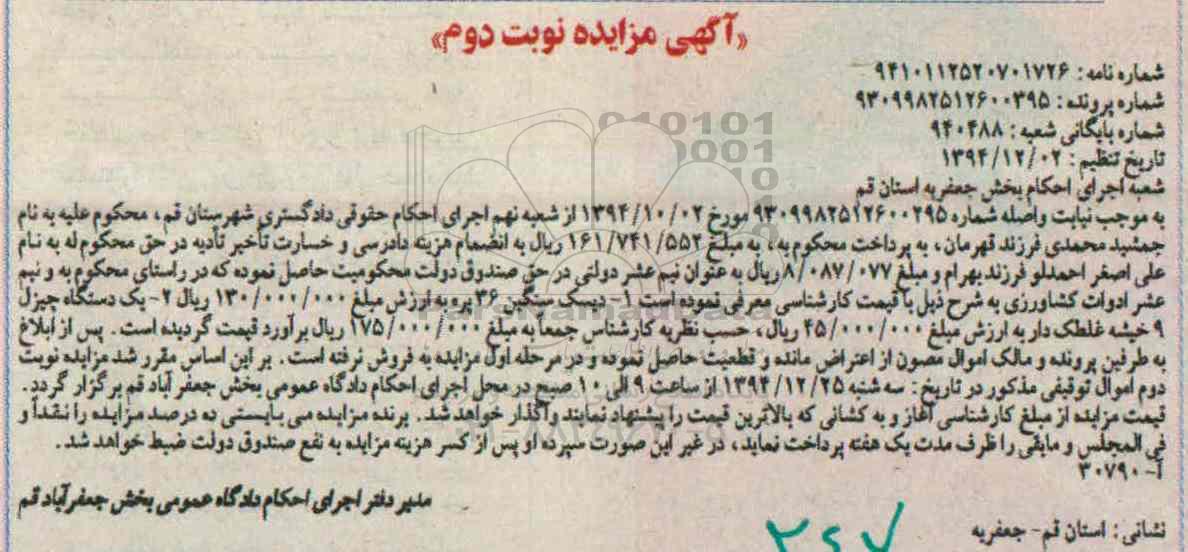 «آگهی مزایده نوبت دوم»
شماره نامه: ۹۴۱۰۱۱۲۵۲۰۷۰۱۷۲۶
شماره پرونده: ۹۳۰۹۹۸۲۵۱۲۶۰۰۳۹۵
شماره بایگانی شعبه: ۹۴۰۴۸۸
تاریخ تنظیم: ۱۳۹۴/۱۲/۰۲
شعبه اجرای احکام بخش جعفریه استان قم
به موجب نیابت واصله شماره ۹۳۰۹۹۸۲۵۱۲۶۰۰۲۹۵ مورخ ۱۳۹۴/۱۰/۰۲ از شعبه نهم اجرای احکام حقوقی دادگستری شهرستان قم، محکوم علیه به نام
جمشید محمدی فرزند قهرمان، به پرداخت محکوم به، به مبلغ ۱۶۱/۷۴۱/۵۵۲ ریال به انضمام هزینه دادرسی و خسارت تأخیر تأدیه در حق محکوم له به نام
علی اصغر احمدلو فرزند بهرام و مبلغ ۸/۰۸۷/۰۷۷ ریال به عنوان نیم عشر دولتی در حق صندوق دولت محکومیت حاصل نموده که در راستای محکوم به و نیم
عشر ادوات کشاورزی به شرح ذیل با قیمت کارشناسی معرفی نموده است ۱- دیسک سنگین ۳۶ پره به ارزش مبلغ ۱۳۰/۰۰۰/۰۰۰ ریال ۲- یک دستگاه چیزل
۹ خیشه غلطک دار به ارزش مبلغ ۴۵/۰۰۰/۰۰۰ ریال، حسب نظریه کارشناس جمعاً به مبلغ ۱۷۵/۰۰۰/۰۰۰ ریال برآورد قیمت گردیده است. پس از ابلاغ
به طرفین پرونده و مالک اموال مصون از اعتراض مانده و قطعیت حاصل نموده و در مرحله اول مزایده به فروش نرفته است. بر این اساس مقرر شد مزایده نوبت
دوم اموال توقیفی مذکور در تاریخ: سه شنبه ۱۳۹۴/۱۲/۲۵ از ساعت ۹ الی ۱۰ صبح در محل اجرای احکام دادگاه عمومی بخش جعفر آباد قم برگزار گردد.
قیمت مزایده از مبلغ کارشناسی آغاز و به کسانی که بالاترین قیمت را پیشنهاد نمایند واگذار خواهد شد. برنده مزایده می بایستی ده درصد مزایده را نقداً و
فی المجلس و مابقی را ظرف مدت یک هفته پرداخت نماید، در غیر این صورت سپرده او پس از کسر هزینه مزایده به نفع صندوق دولت ضبط خواهد شد.
آ-۳۰۷۹۰
مدیر دفتر اجرای احکام دادگاه عمومی بخش جعفرآباد قم
نشانی: استان قم- جعفریه